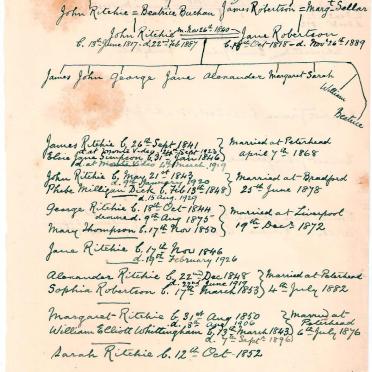 John Ritchie = Beatrice Buchan James Robertson = Margt Sellar
John Ritchie m. Nov 26th 1840 Jane Robertson
b. 18th June 1817 - d. 22nd Feb 1887 b. 18th Oct 1818 - d. Nov 26th 1889
James John George Jane Alexander Margaret Sarah William Beatrice
James Ritchie b. 26th Sept 1841
d. at Monte Video 24th Sept 1923
Elsie Jane Simpson b. 31st Jan 1846
d. at Monte Video March 1919
Married at Peterhead
April 7th 1868
John Ritchie b. May 21st 1843
d. 9th 1920
Phebe Milligan Dick b. Feb 15th 1848
d. 15 Aug. 1929
Married at Bradford
25th June 1878
George Ritchie b. 18th Oct 1844
drowned 9th Aug 1875
Mary Thompson b. 17th Nov 1850
Married at Liverpool
19th Dec 1872
Jane Ritchie b. 17th Nov 1846
d. 19th February 1926
Alexander Ritchie b. 22nd Dec 1848
d. 22nd June 1919
Sophia Robertson b. 17th March 1853
Married at Peterhead
4th July 1882
Margaret Ritchie b. 31st Aug 1850
d. 13th Aug 1906
William Elliott Whittingham b. 13th March 1843
d. 7th Sept 1896
Married at
Peterhead
6th July 1876
Sarah Ritchie b. 12th Oct 1852